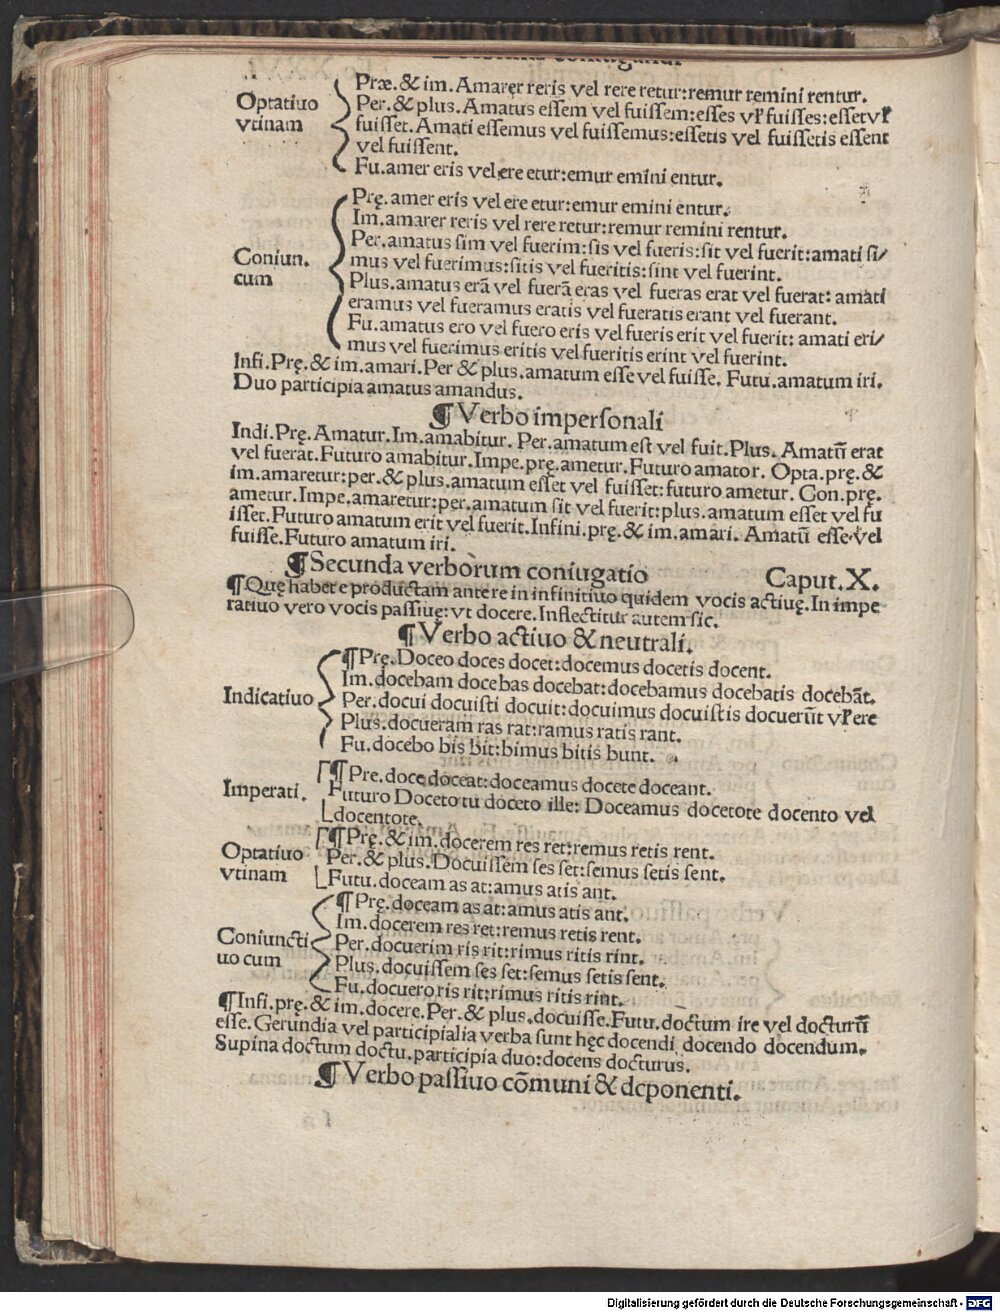 Optatiuo
vtinam
Præ. & im. Amarer reris vel rere retur:remur remini rentur.
Per. & plus. Amatus eſſem vel fuiſſem:eſſes vľ fuiſſes:eſſetvľ
fuiſſet. Amati eſſemus vel fuiſſemus:eſſetis vel fuiſſetis eſſent
vel fuiſſent.
Fu. amer eris vel ere etur:emur emini entur.
Coniun.
cum
Prę. amer eris vel ere etur:emur emini entur.
Im. amarer reris vel rere retur:remur remini rentur.
Per. amatus ſim vel fuerim:ſis vel fueris:ſit vel fuerit:amati ſi/
mus vel fuerimus:ſitis vel fueritis:ſint vel fuerint.
Plus. amatus erā vel fuerā eras vel fueras erat vel fuerat: amati
eramus vel fueramus eratis vel fueratis erant vel fuerant.
Fu. amatus ero vel fuero eris vel fueris erit vel fuerit: amati eri/
mus vel fuerimus eritis vel fueritis erint vel fuerint.
Infi. Prę. & im. amari. Per & plus. amatum eſſe vel fuiſſe. Futu. amatum iri.
Duo participia amatus amandus.
¶ Verbo imperſonali
Indi. Prę. Amatur. Im. amabitur. Per. amatum eſt vel fuit. Plus. Amatū erat
vel fuerat. Futuro amabitur. Impe. prę. ametur. Futuro amator. Opta. prę. &
im. amaretur: per. & plus. amatum eſſet vel fuiſſet: futuro ametur. Con. prę.
ametur. Impe. amaretur: per. amatum ſit vel fuerit: plus. amatum eſſet vel fu
iſſet. Futuro amatum erit vel fuerit. Infini. prę. & im. amari. Amatū eſſe vel
fuiſſe. Futuro amatum iri.
¶ Secunda verborum coniugatio Caput. X.
¶ Quę habet e productam ante re in infinitiuo quidem vocis actiuę. In impe
ratiuo vero vocis paſſiuę: vt docere. Inflectitur autem ſic.
¶ Verbo actiuo & neutrali.
Indicatiuo
¶ Prę. Doceo doces docet: docemus docetis docent.
Im. docebam docebas docebat: docebamus docebatis docebāt.
Per. docui docuiſti docuit: docuimus docuiſtis docuerūt vľ ere
Plus. docueram ras rat: ramus ratis rant.
Fu. docebo bis bit: bimus bitis bunt.
Imperati.
¶ Pre. doce doceat: doceamus docete doceant.
Futuro Doceto tu doceto ille: Doceamus docetote docento vel
docentote.
Optatiuo
vtinam
¶ Prę. & im. docerem res ret: remus retis rent.
Per. & plus. Docuiſſem ſes ſet: ſemus ſetis ſent.
Futu. doceam as at: amus atis ant.
Coniuncti
uo cum
¶ Prę. doceam as at: amus atis ant.
Im. docerem res ret: remus retis rent.
Per. docuerim ris rit: rimus ritis rint.
Plus. docuiſſem ſes ſet: ſemus ſetis ſent.
Fu. docuero ris rit: rimus ritis rint.
¶ Infi. prę. & im. docere. Per. & plus. docuiſſe. Futu. doctum ire vel docturū
eſſe. Gerundia vel participialia verba ſunt hęc docendi docendo docendum.
Supina doctum doctu. participia duo: docens docturus.
¶ Verbo paſſiuo cōmuni & deponenti.
Digitalisierung gefördert durch die Deutsche Forschungsgemeinschaft - DFG